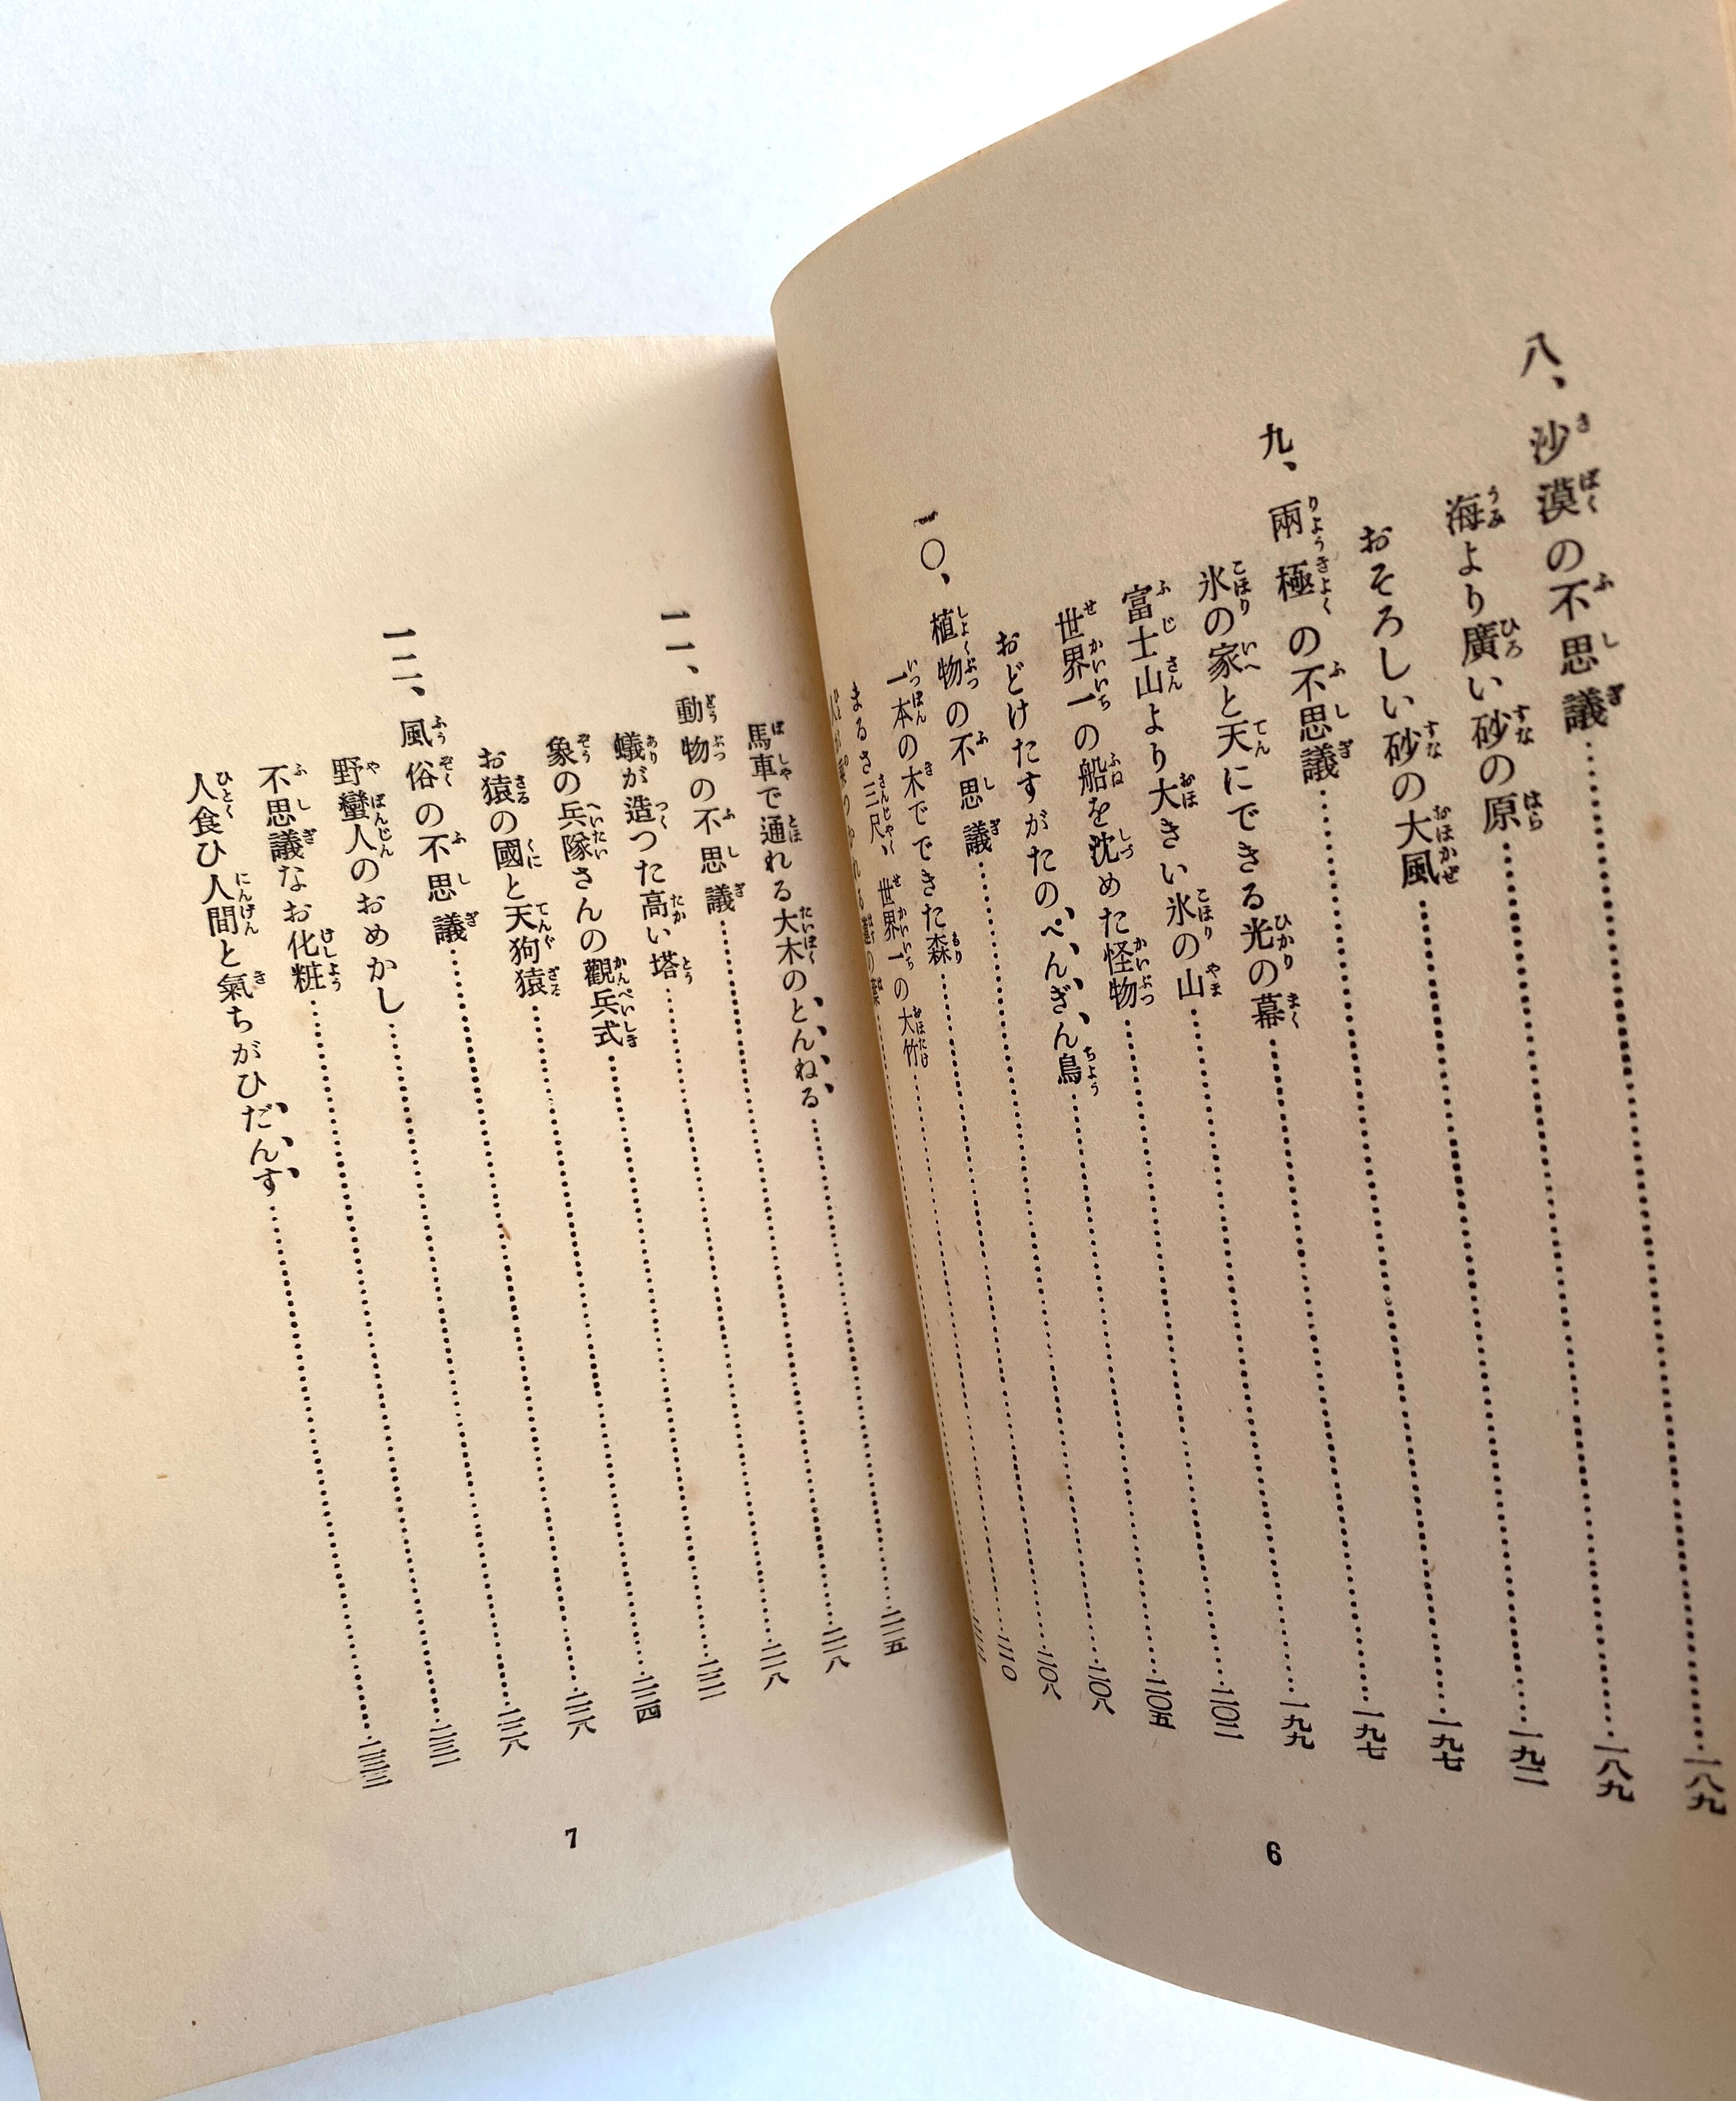 八、沙漠の不思議……一八九
海より廣い砂の原……一八九
おそろしい砂の大風……一九二
九、兩極の不思議……一九七
氷の家と天にできる光の幕……一九七
富士山より大きい氷の山……一九九
世界一の船を沈めた怪物……二〇二
おどけたすがたのぺんぎん鳥……二〇五
一〇、植物の不思議……二〇八
一本の木でできた森……二〇八
まるさ三尺、世界一の大竹……二一〇
6
馬車で通れる大木のとんねる……二一五
一一、動物の不思議……二一八
蟻が造つた高い塔……二一八
象の兵隊さんの觀兵式……二二一
お猿の國と天狗猿……二二四
一二、風俗の不思議……二二八
野蠻人のおめかし……二二八
不思議なお化粧……二三一
人食ひ人間と氣ちがひだんす……二三三
7